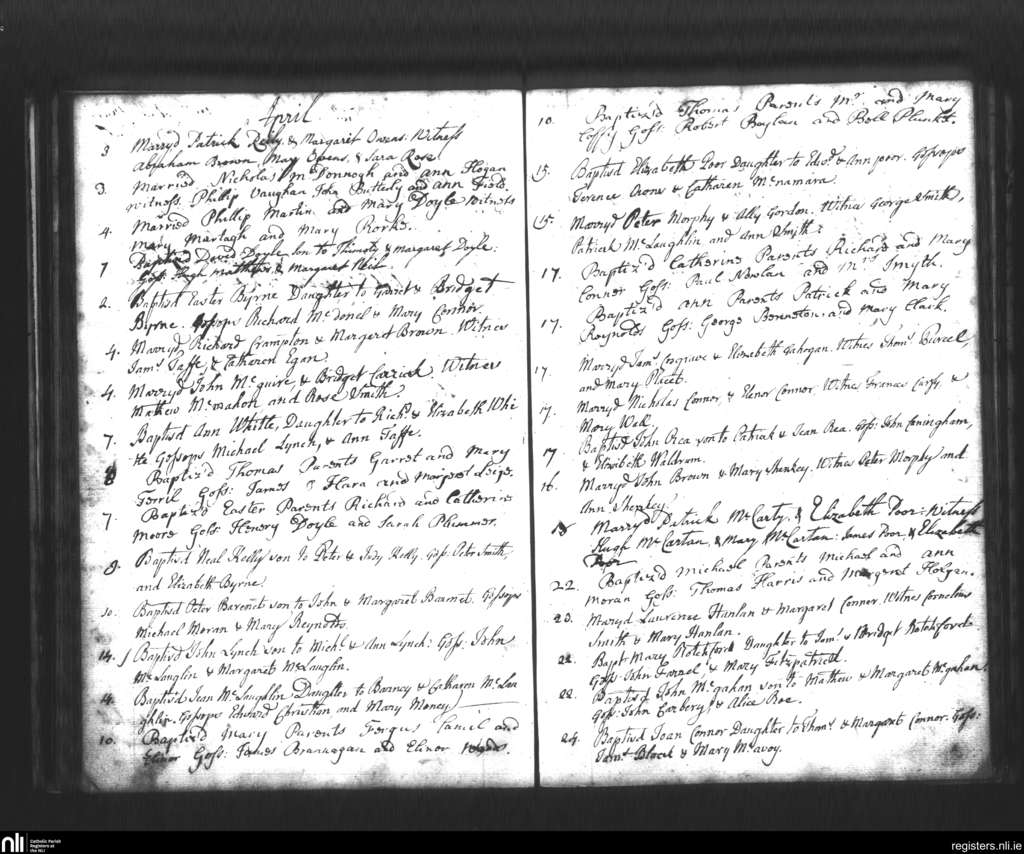 April
3 Marryd Patrick Reily & Margaret Owens. Witness
Abraham Brown, May Owens, & Sara Rose
3. Married Nicholas McDonnogh and ann Hogan
witness. Phillip Vaughan John Butterly and ann Fields.
4. Married Phillip Martin and Mary Doyle Witness
Mary Martagh and Mary Rorke.
7 Baptized David Doyle son to Thimoty & Margaret Doyle:
Goss: Hugh & Margaret
2. Baptisd Easter Byrne Daughter to & Bridget
Byrne. Gossops Richard McDonel & Mary Connor.
4. Marryd Richard Crampton & Margeret Brown. Witnes
Jams Taffe, & Catheren Egan.
4. Marryd John McGuire, & Bridget. Witnes
Mathew McMahon and Rose Smith.
7. Baptisd Ann Whitle, Daughter to Richd & Elizabeth Whi
tle Gossops Michael Lynch, & Ann Taffe.
8 Baptiz'd Thomas Parents Garret and Mary
Ferril Goss: James O Hara and Margret
7. Baptiz'd Easter Parents Richard and Catherin
Moore Goss: Henery Doyle and Sarah Plummer.
9. Baptisd Neal Reilly son to Peter & Judy Reilly. Goss: Petr Smith,
and Elizabeth Byrne.
10. Baptisd Peter Barenet son to John & Margaret Barnet. Gossops
Michael Moran & Mary Reynolds.
14. Baptisd John Lynch son to Michl & Ann Lynch: Goss: John
McLauglin & Margaret McLauglin.
14. Baptisd Jean McLaughlin Daughter to Barney & Catharen McLau
ghlin. Gossops Edward Christian and Mary Money
10. Baptiz'd Mary Parents Fergus and
Elinor Goss: James Branagan and Elinor
10. Baptiz'd Thomas Parents Mr and Mary
Coffy Goss: Robert Boylan and Bell Plunket.
15. Baptisd Elizabeth Poor Daughter to Edwd & Ann poor. Gossops
Terence Crone & Catharen McNamara.
15. Marryd Peter Morphy & Ally Gordon. Witnes George Smith,
Patriak McLaughlin and Ann Smith.
17. Baptiz'd Catherine Parents Richard and Mary
Connor Goss: Paul Nowlan and Mrs Smyth.
17. Baptiz'd ann Parents Patrick and Mary
Reynolds Goss: George Benneton. and Mary Clark.
17. Marryd Jams Cosgrave & Elizabeth Gahogan. Witnes Thoms Purcel,
and Mary
17. Marryd Nicholas Connor, & Elenor Connor. Witnes Frances &
Mary Well.
17 Baptisd John Rea son to Patriak & Jean Rea. Goss: John Coningham,
& Elizibeth Waldrum.
16. Marryd John Brown & Mary Shenkey. Witnes Peter Morphy and
Ann Shenkey.
18 Marryd Patrick McCarty, & Elizabeth Poor: Witness
Hugh McCartan, & Mary McCartan: James Poor, & Elizabeth
Poor
22. Baptiz'd Michael Parents Michael and ann
Moran Goss: Thomas Harris and Margeret Horgan.
23. Maryd Laurence Hanlan & Margaret Connor. Witnes Cornelius
Smith & Mary Hanlan.
22. Bapt Mary Rotchford Daughter to Jams & Bridget Rotchford
Goss: John Farrel & Mary Fitzpatrick.
22. Baptisd John McGahan son to Mathew & Margaret McGahan.
Goss: John Carbery & Alice Roe.
24. Baptisd Joan Connor Daughter to Thoms & Margaret Connor. Goss:
Jams Block & Mary McAvoy.
nli Catholic Parish
Registers at
the NLI
registers.nli.ie